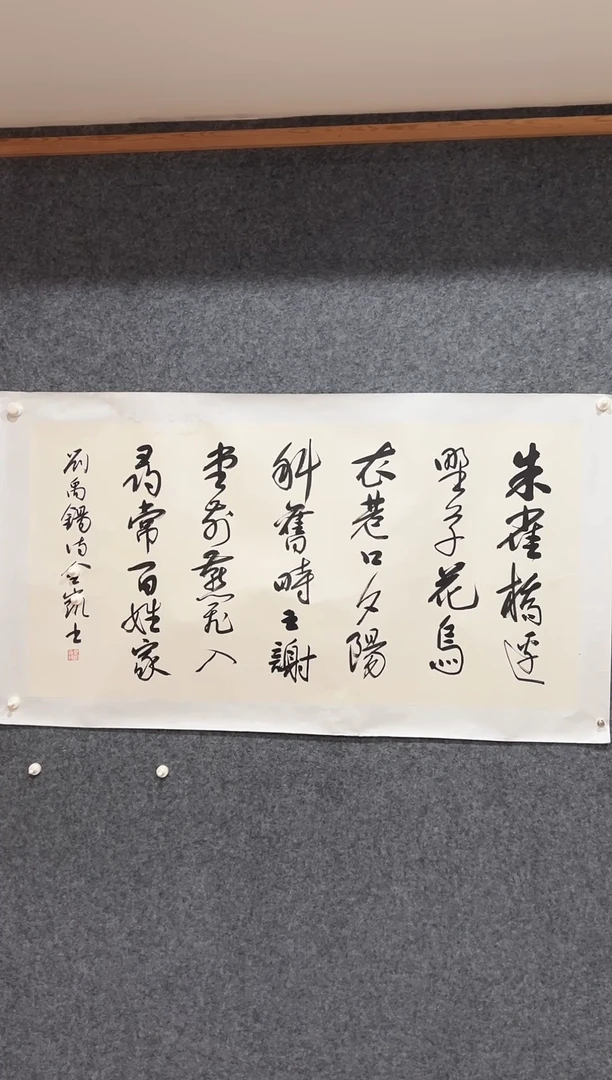 朱雀橋邊
野草花烏
衣巷口夕陽
斜舊時王謝
堂前燕飛入
尋常百姓家
劉禹錫詩仝凱書